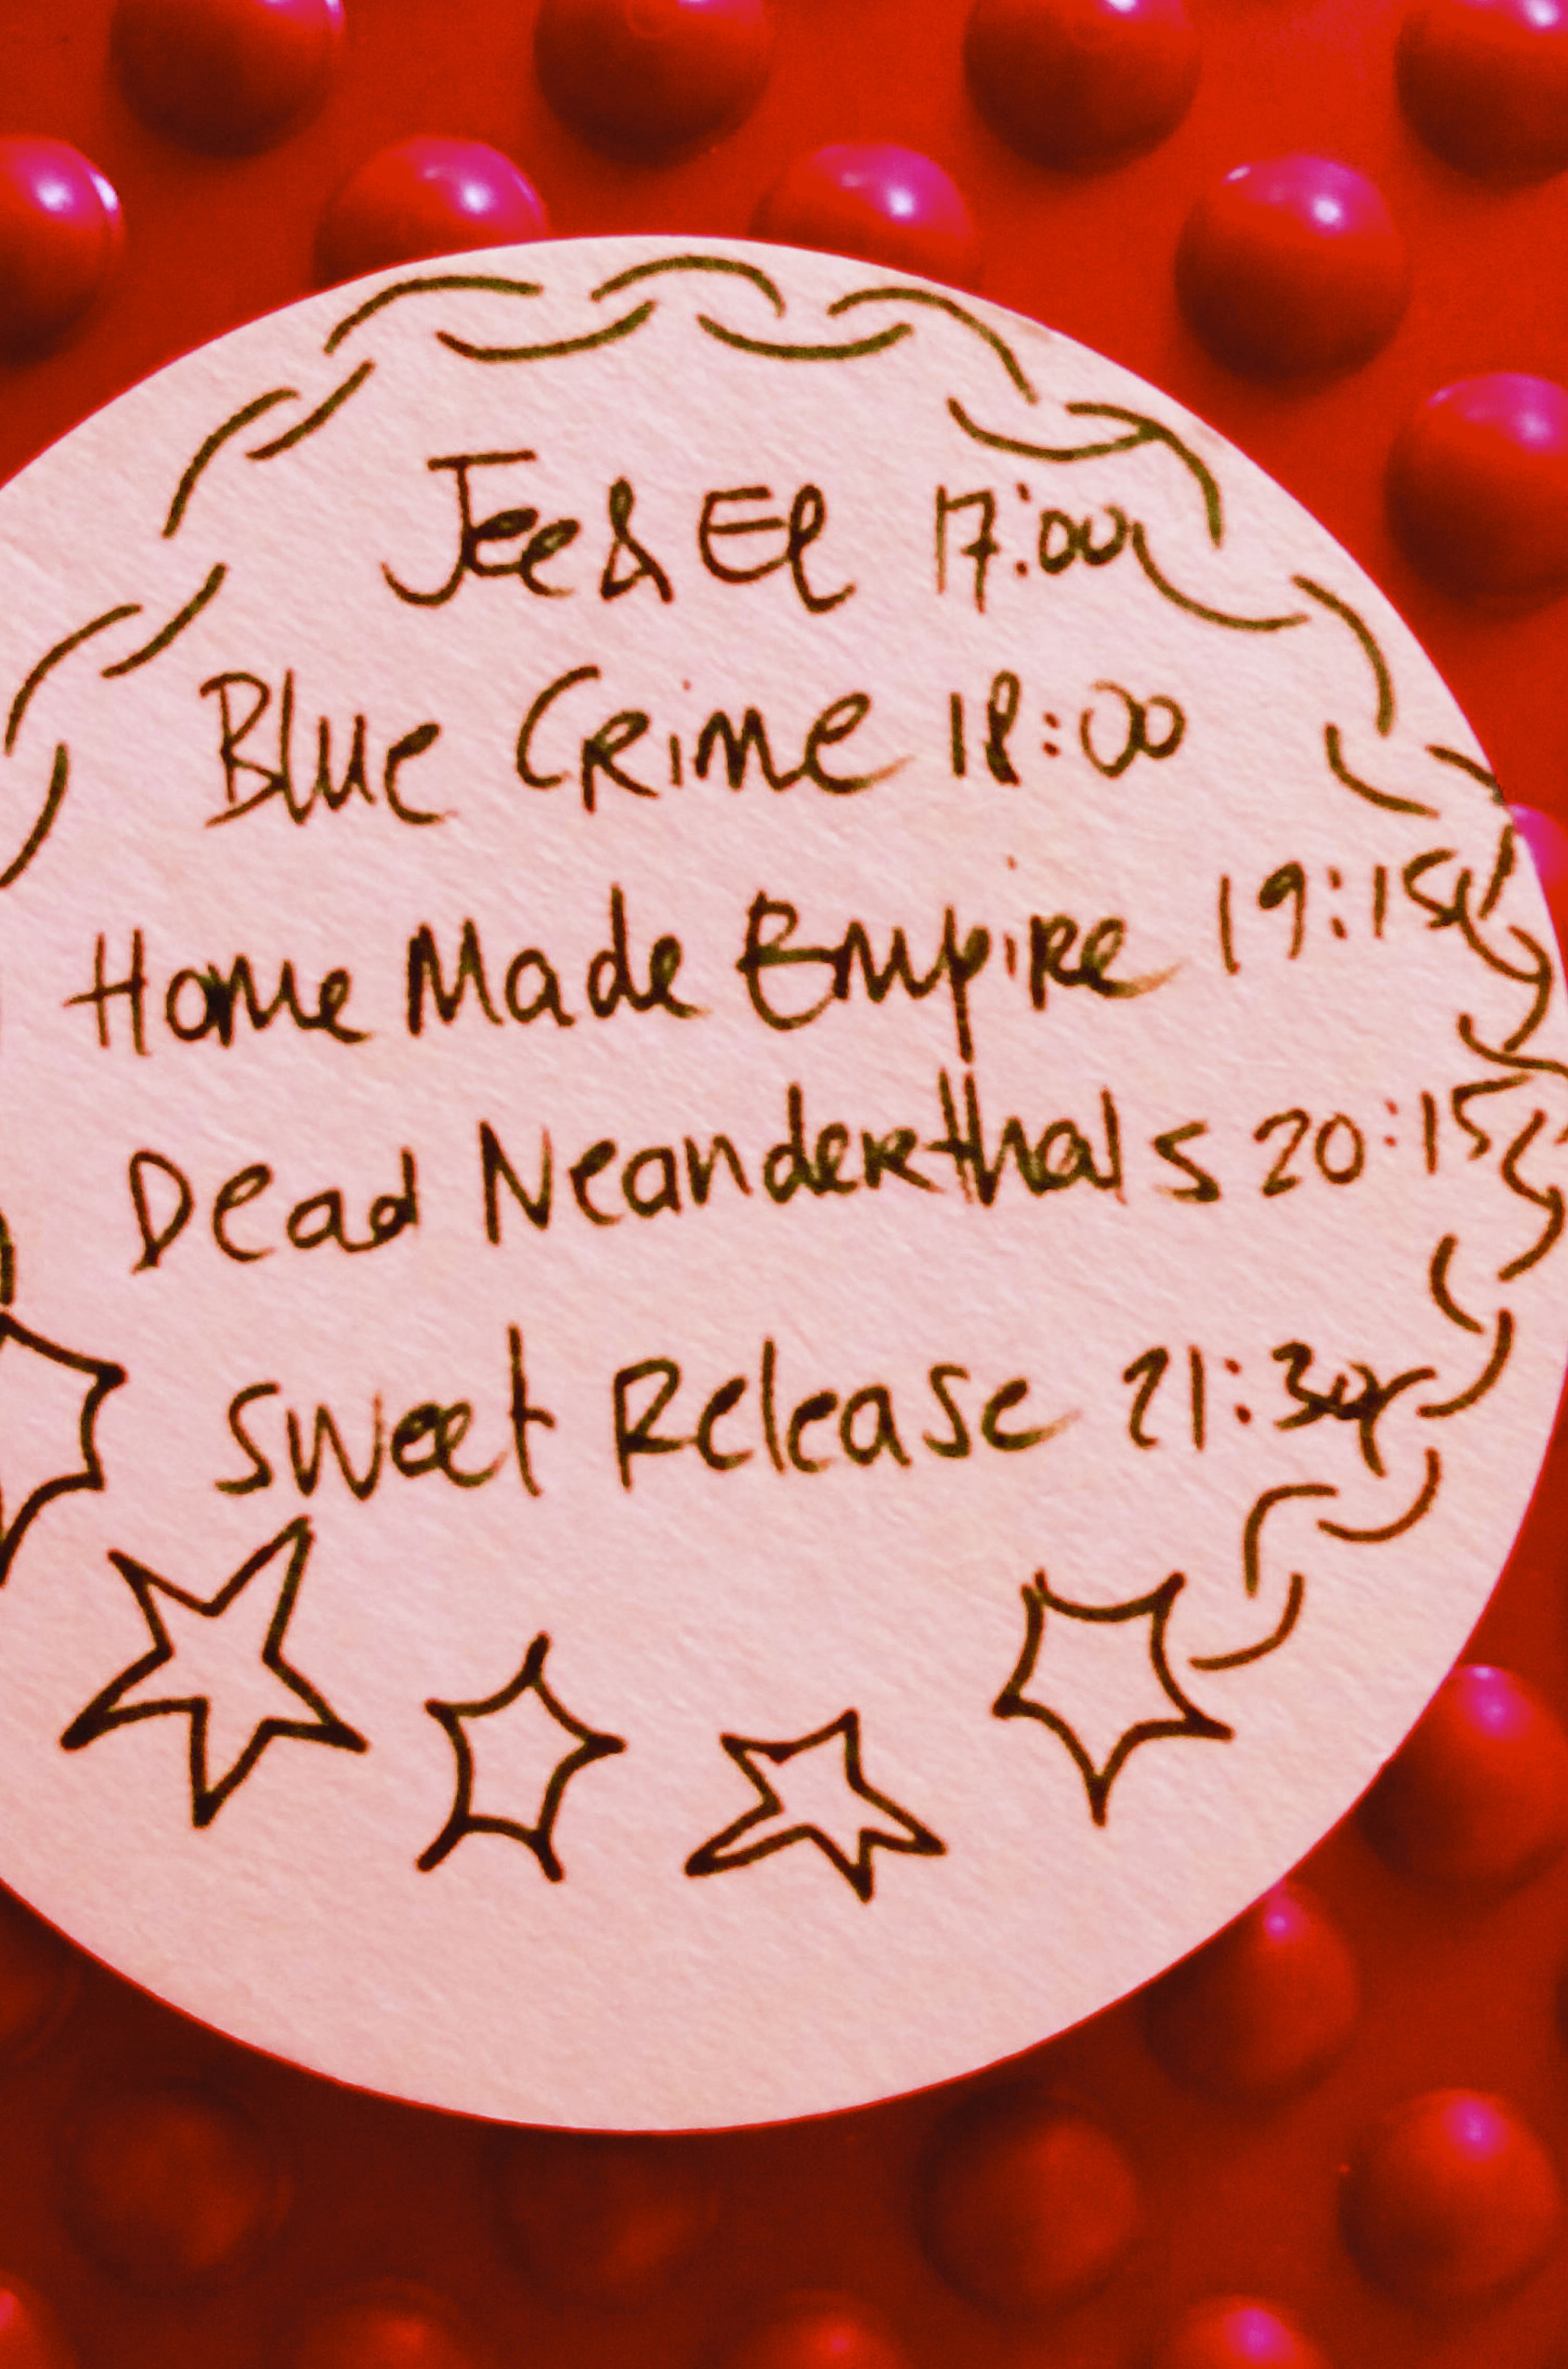 Jee & El 17:00
Blue Crime 18:00
Home Made Empire 19:15
Dead Neanderthals 20:15
Sweet Release 21:30